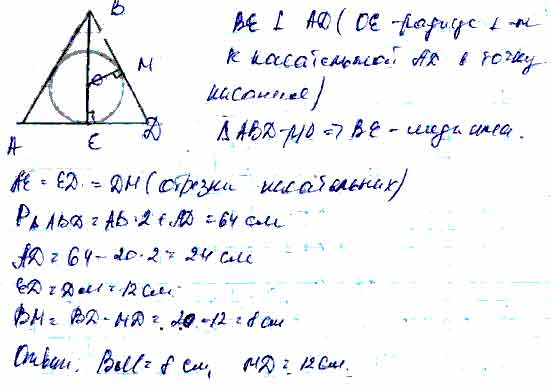 B
O
M
A
E
D
BE ⊥ AD (OE - радиус ⊥-н
к касательной AD в точку
касания)
Δ ABD - р/б => BE - медиана.
AE = ED = DM (отрезки касательных)
P Δ ABD = AB · 2 + AD = 64 см
AD = 64 - 20 · 2 = 24 см
ED = DM = 12 см.
BM = BD - MD = 20 - 12 = 8 см
Ответ: BM = 8 см, MD = 12 см.